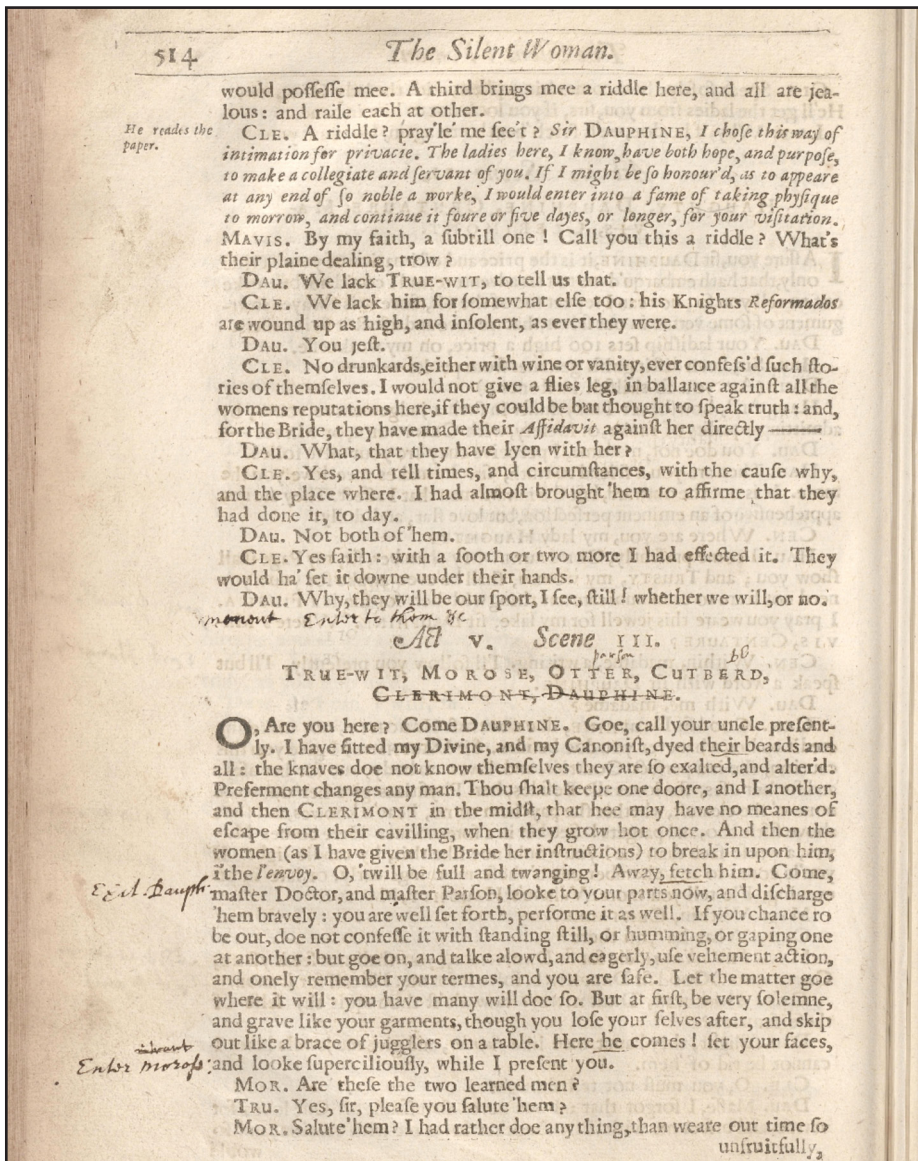 514 The Silent Woman.
would possesse mee. A third brings mee a riddle here, and all are jea-
lous: and raile each at other.
He reades the
paper.
CLE. A riddle? pray'le' me see't? Sir DAUPHINE, I chose this way of
intimation for privacie. The ladies here, I know, have both hope, and purpose,
to make a collegiate and servant of you. If I might be so honour'd, as to appeare
at any end of so noble a worke, I would enter into a fame of taking physique
to morrow, and continue it foure or five dayes, or longer, for your visitation.
MAVIS. By my faith, a subtill one! Call you this a riddle? What's
their plaine dealing, trow?
DAU. We lack TRUE-WIT, to tell us that.
CLE. We lack him for somewhat else too: his Knights Reformados
are wound up as high, and insolent, as ever they were.
DAU. You jest.
CLE. No drunkards, either with wine or vanity, ever confess'd such sto-
ries of themselves. I would not give a flies leg, in ballance against all the
womens reputations here, if they could be but thought to speak truth: and,
for the Bride, they have made their Affidavit against her directly ——
DAU. What, that they have lyen with her?
CLE. Yes, and tell times, and circumstances, with the cause why,
and the place where. I had almost brought 'hem to affirme that they
had done it, to day.
DAU. Not both of 'hem.
CLE. Yes faith: with a sooth or two more I had effected it. They
would ha' set it downe under their hands.
DAU. Why, they will be our sport, I see, still! whether we will, or no.
Enter to them &c
Act V. Scene III.
parson
TRUE-WIT, MOROSE, OTTER, CUTBERD,
CLERIMONT, DAUPHINE.
O, Are you here? Come DAUPHINE. Goe, call your uncle present-
ly. I have fitted my Divine, and my Canonist, dyed their beards and
all: the knaves doe not know themselves they are so exalted, and alter'd.
Preferment changes any man. Thou shalt keepe one doore, and I another,
and then CLERIMONT in the midst, that hee may have no meanes of
escape from their cavilling, when they grow hot once. And then the
women (as I have given the Bride her instructions) to break in upon him,
i'the l'envoy. O, 'twill be full and twanging! Away, fetch him. Come,
Exit Dauph:
master Doctor, and master Parson, looke to your parts now, and discharge
'hem bravely: you are well set forth, performe it as well. If you chance to
be out, doe not confesse it with standing still, or humming, or gaping one
at another: but goe on, and talke alowd, and eagerly, use vehement action,
and onely remember your termes, and you are safe. Let the matter goe
where it will: you have many will doe so. But at first, be very solemne,
and grave like your garments, though you lose your selves after, and skip
out like a brace of jugglers on a table. Here he comes! set your faces,
Enter Moross:
and looke superciliously, while I present you.
MOR. Are these the two learned men?
TRU. Yes, sir, please you salute 'hem?
MOR. Salute 'hem? I had rather doe any thing, than weare out time so
unfruitfully,